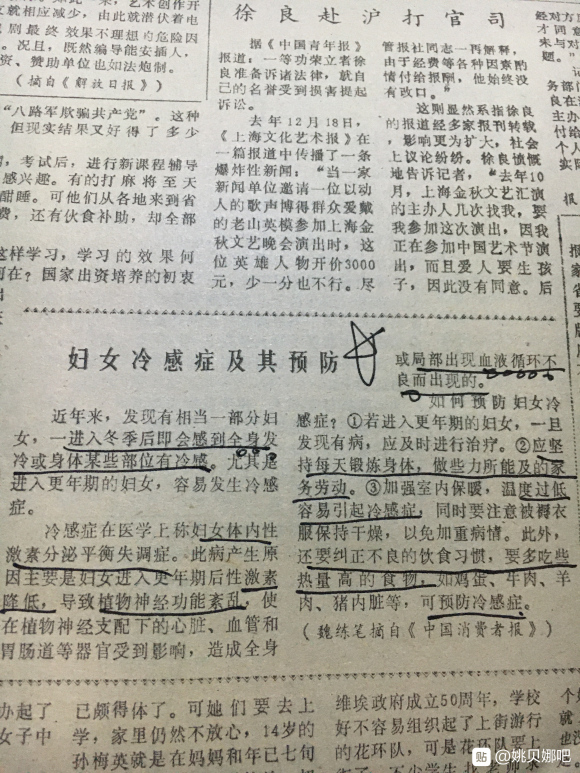 文就相应减少，由此就潜伏着电
视剧最终效果不理想的危险因
况且，既然编导能安插人，
赞助单位也如法炮制。
（摘自《解放日报》）
“八路军欺骗共产党”。这种
但现实结果又好得了多少
考试后，进行新课程辅导
感兴趣。有的打麻将至天
酣睡。可他们从各地来到省
费，还有伙食补助，却全部
这样学习，学习的效果何
何在？国家出资培养的初衷
徐良赴沪打官司
据《中国青年报》
报道：一等功荣立者徐
良准备诉诸法律，就自
己的名誉受到损害提起
诉讼。
去年12月18日，
《上海文化艺术报》在
一篇报道中传播了一条
爆炸性新闻：“当一家
新闻单位邀请一位以动
人的歌声博得群众爱戴
的老山英模参加上海金
秋文艺晚会演出时，这
位英雄人物开价3000
元，少一分也不行。尽
管报社同志一再解释，
由于经费等各种因素酌
情付给报酬，他始终没
有改口。”
这则显然系指徐良
的报道经多家报刊转载
，影响更为扩大，社会
上议论纷纷。徐良愤慨
地告诉记者，“去年10
月，上海金秋文艺汇演
的主办人几次找我，要
我参加这次演出，因我
正在参加中国艺术节演
出，而且爱人要生孩
子，因此没有同意。后
妇女冷感症及其预防
近年来，发现有相当一部分妇
女，一进入冬季后即会感到全身发
冷或身体某些部位有冷感。尤其是
进入更年期的妇女，容易发生冷感
症。
冷感症在医学上称妇女体内性
激素分泌平衡失调症。此病产生原
因主要是妇女进入更年期后性激素
降低，导致植物神经功能紊乱，使
在植物神经支配下的心脏、血管和
胃肠道等器官受到影响，造成全身
或局部出现血液循环不
良而出现的。
如何预防妇女冷
感症？①若进入更年期的妇女，一旦
发现有病，应及时进行治疗。②应坚
持每天锻炼身体，做些力所能及的家
务劳动。③加强室内保暖，温度过低
容易引起冷感症，同时要注意被褥衣
服保持干燥，以免加重病情。此外，
还要纠正不良的饮食习惯，要多吃些
热量高的食物，如鸡蛋、牛肉、羊
肉、猪内脏等，可预防冷感症。
（魏练笔摘自《中国消费者报》）
办起了
女子中
已颇得体了。可她们要去上
学，家里仍然不放心，14岁的
孙梅英就是在妈妈和年已七旬
维埃政府成立50周年，学校
好不容易组织起了上街游行
的花环队，可是花环队要上
贴 @姚贝娜吧